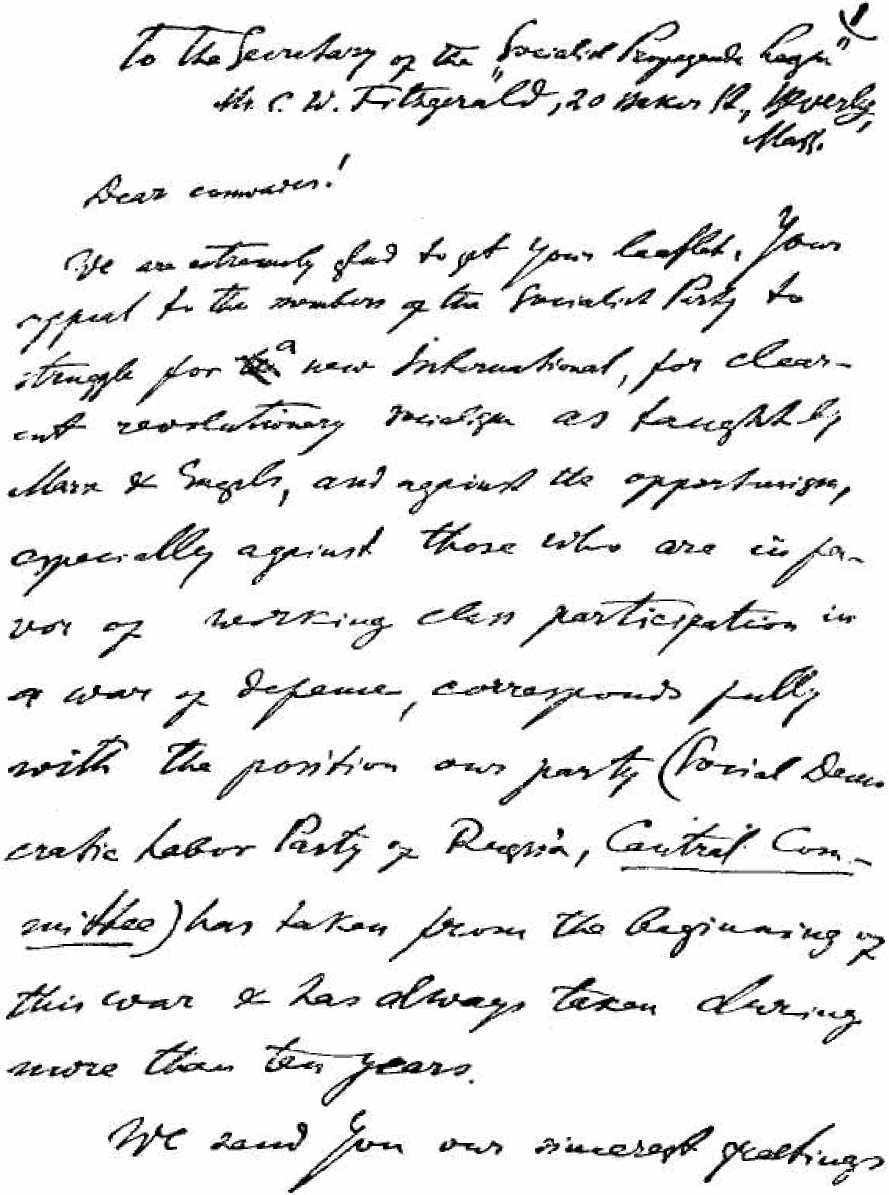 To the Secretary of the "Socialist Propaganda League"
Mr. C. W. Fitzgerald, 20 Baker St., Beverly,
Mass.
Dear comrades!
We are extremely glad to get your leaflet. Your
appeal to the members of the Socialist Party to
struggle for a new International, for clear-
cut revolutionary socialism as taught by
Marx & Engels, and against the opportunism,
especially against those who are in fa-
vor of working class participation in
a war of defence, corresponds fully
with the position our party (Social Demo
cratic Labor Party of Russia, Central Com-
mittee) has taken from the beginning of
this war & has always taken during
more than ten years.
We send you our sincerest greetings